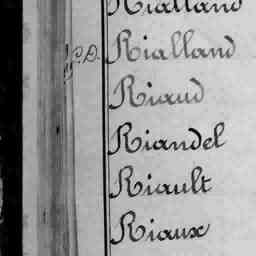 Rialland
D. Rialland
Riaud
Riandel
Riault
Riaux